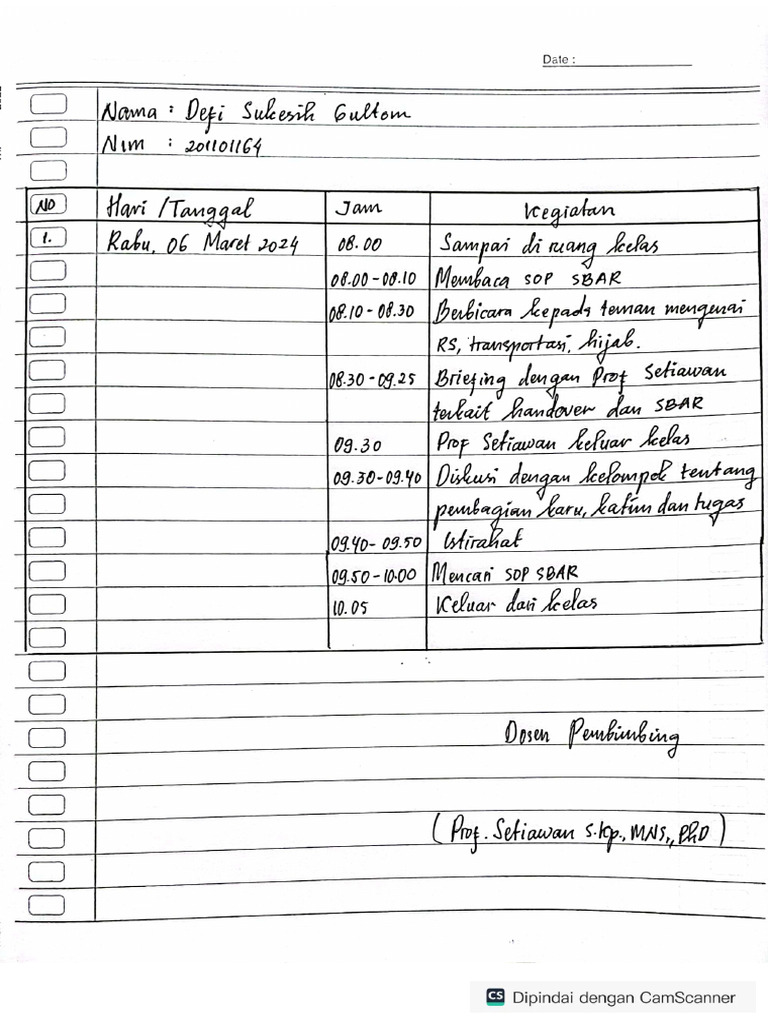 Date :
Nama : Defi Sukesih Gultom
Nim : 201101164
NO Hari / Tanggal Jam Kegiatan
1. Rabu, 06 Maret 2024 08.00 Sampai di ruang kelas
08.00 - 08.10 Membaca SOP SBAR
08.10 - 08.30 Berbicara kepada teman mengenai
RS, transportasi, hijab.
08.30 - 09.25 Briefing dengan Prof Setiawan
terkait handover dan SBAR
09.30 Prof Setiawan keluar kelas
09.30 - 09.40 Diskusi dengan kelompok tentang
pembagian karu, katim dan tugas
09.40 - 09.50 Istirahat
09.50 - 10.00 Mencari SOP SBAR
10.05 Keluar dari kelas
Dosen Pembimbing
(Prof. Setiawan S.Kp., MNS., PhD)
CS Dipindai dengan CamScanner